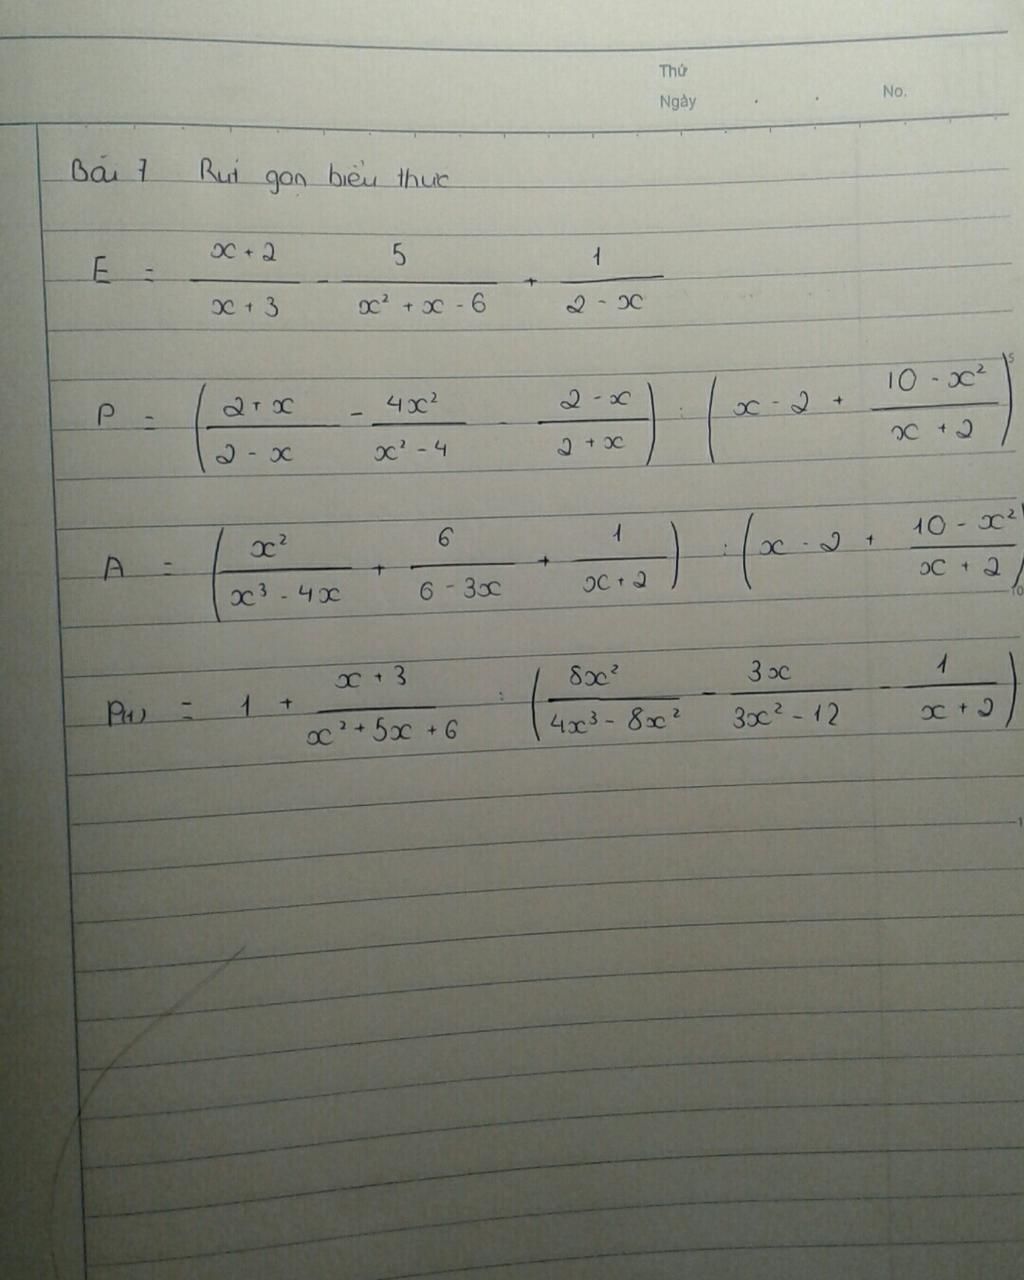 Thứ
Ngày . . No.
Bài 7 Rút gọn biểu thức
E = \frac{x + 2}{x + 3} - \frac{5}{x² + x - 6} + \frac{1}{2 - x}
P = \left( \frac{2 + x}{2 - x} - \frac{4x²}{x² - 4} - \frac{2 - x}{2 + x} \right) : \left( x - 2 + \frac{10 - x²}{x + 2} \right)
5
A = \left( \frac{x²}{x³ - 4x} + \frac{6}{6 - 3x} + \frac{1}{x + 2} \right) : \left( x - 2 + \frac{10 - x²}{x + 2} \right)
10
P(1) = 1 + \frac{x + 3}{x² + 5x + 6} : \left( \frac{8x²}{4x³ - 8x²} - \frac{3x}{3x² - 12} - \frac{1}{x + 2} \right)